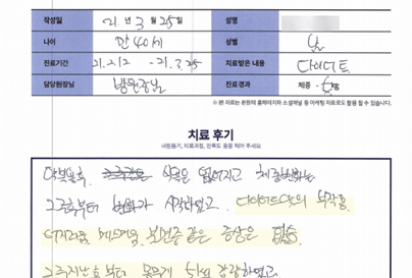 작성일 21년 3월 25일 성명
나이 만 40세 성별 남
진료기간 21.2.12 - 21.3.25 치료받은 내용 다이어트
담당원장님 방원장님 진료경과 체중 -6kg
※ 본 치료는 본원의 홈페이지와 소셜채널 등 마케팅 자료로도 활용 될 수 있습니다.
치료 후기
내원동기, 치료과정, 만족도 등을 적어 주세요
식욕은 없어지고 체중변화는
그 후부터 변화가 시작하였고. 다이어트약의 부작용
어지러움 메스꺼움 같은 증상은 없음.
그 주 지난 후부터 감량하였고